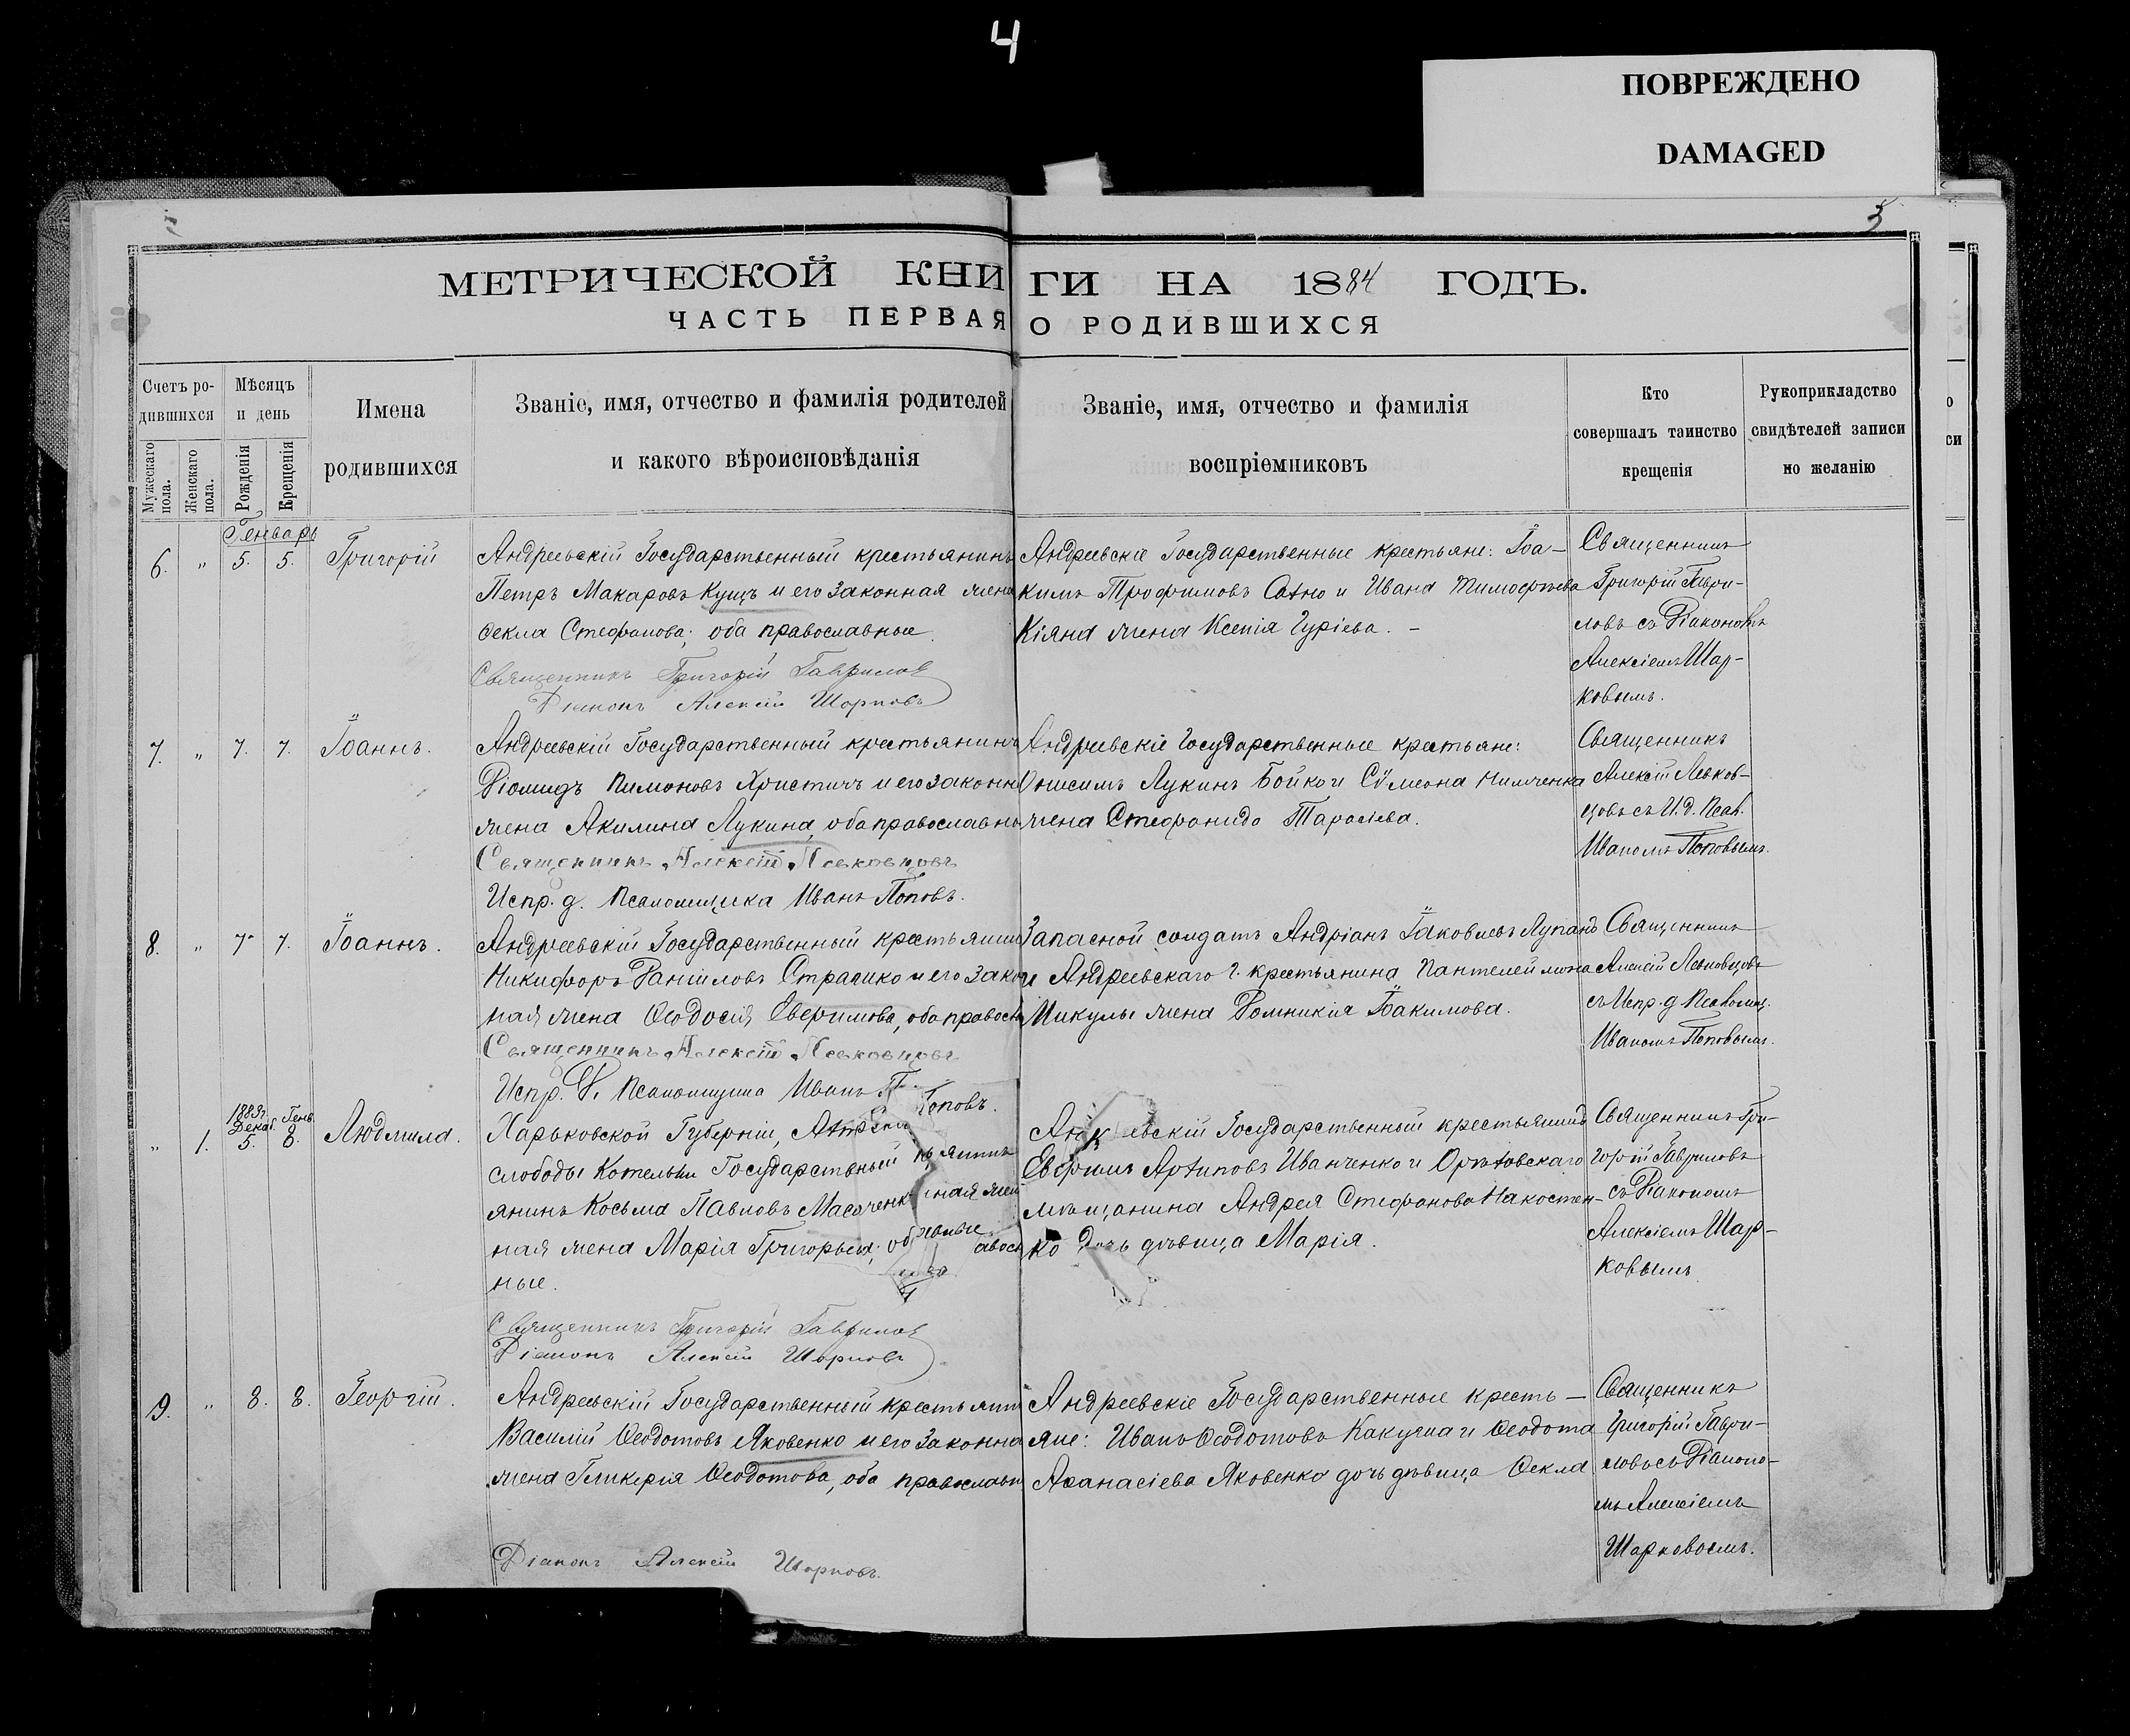 4
ПОВРЕЖДЕНО
DAMAGED
3
МЕТРИЧЕСКОЙ КНИГИ НА 1884 ГОДЪ.
ЧАСТЬ ПЕРВАЯ О РОДИВШИХСЯ
Счетъ ро-
дившихся
Мужескаго пола.
Женскаго пола.
Мѣсяцъ
и день
Рожденія
Крещенія
Имена
родившихся
Званіе, имя, отчество и фамилія родителей
и какого вѣроисповѣданія
Званіе, имя, отчество и фамилія
воспріемниковъ
Кто
совершалъ таинство
крещенія
Рукоприкладство
свидѣтелей записи
по желанію
Генварь
6. " 5. 5. Григорій
Андреевскій Государственный крестьянинъ
Петръ Макаровъ Кущъ и его законная жена
Ѳекла Стефанова; оба православные.
Священникъ Григорій Гаврилов
Діаконъ Алексій Шарковъ
Андреевскіе Государственные крестьяне: Іоа-
кимъ Трофимовъ и Ивана Тимофѣева
Кіяна жена Ксенія Гуріева. -
Священникъ
Григорій Гаври-
ловъ съ Діакономъ
Алексіемъ Шар-
ковымъ.
7. " 7. 7. Іоаннъ.
Андреевскій Государственный крестьянинъ
Діомидъ Пимоновъ Христичъ и его законн
жена Акилина Лукина, оба православн
Священникъ Алексій Левковцовъ
Испр. д. Псаломщика Иванъ Поповъ.
Андреевскіе Государственные крестьяне:
Онисимъ Лукинъ Бойко и Сѵмеона Нимченка
жена Стефанида Тарасіева.
Священникъ
Алексій Левков-
цовъ съ И. д. Псал.
Иваномъ Поповымъ.
8. " 7. 7. Іоаннъ.
Андреевскій Государственный крестьянин
Никифоръ Даніиловъ и его закон
ная жена Ѳеодосія Евфимова, оба правосла
Священникъ Алексій Левковцовъ
Испр. д. Псаломщика Иванъ П Поповъ.
Запасной солдатъ Андріанъ Іаковлевъ Лупанд
и Андреевскаго г. крестьянина Пантелеймона
Микулы жена Домникія Іоакимова.
Священникъ
Алексій Левковцовъ
съ Испр. д Псаломщ.
Иваномъ Поповымъ.
" 1. 1883г. Декаб. 5. Генв. 8. Людмила.
Харьковской Губерніи,
слободы Котельвы Государственый
янинъ Косьма Павловъ
ная жена Марія Григорьева; об
ные.
Священникъ Григорій Гаврилов
Діаконъ Алексій Шарковъ
евскій Государственный крестьянинъ
Евфимъ Архиповъ Иванченко и
мѣщанина Андрея Стефанова Накостен-
ко дочь дѣвица Марія.
Священникъ Гри-
горій Гавриловъ
съ Діакономъ
Алексіемъ Шар-
ковымъ
9. " 8. 8. Георгій.
Андреевскій Государственный крестьянин
Василій Ѳеодотовъ Яковенко и его законна
жена Гликерія Ѳеодотова, оба православн
Діаконъ Алексій Шарковъ.
Андреевскіе Государственные кресть-
яне: Иванъ Ѳеодотовъ и Ѳеодота
Аѳанасіева Яковенко дочь дѣвица Ѳекла
Священникъ
Григорій Гаври-
ловъ съ Діаконо-
мъ Алексіемъ
Шарковымъ.